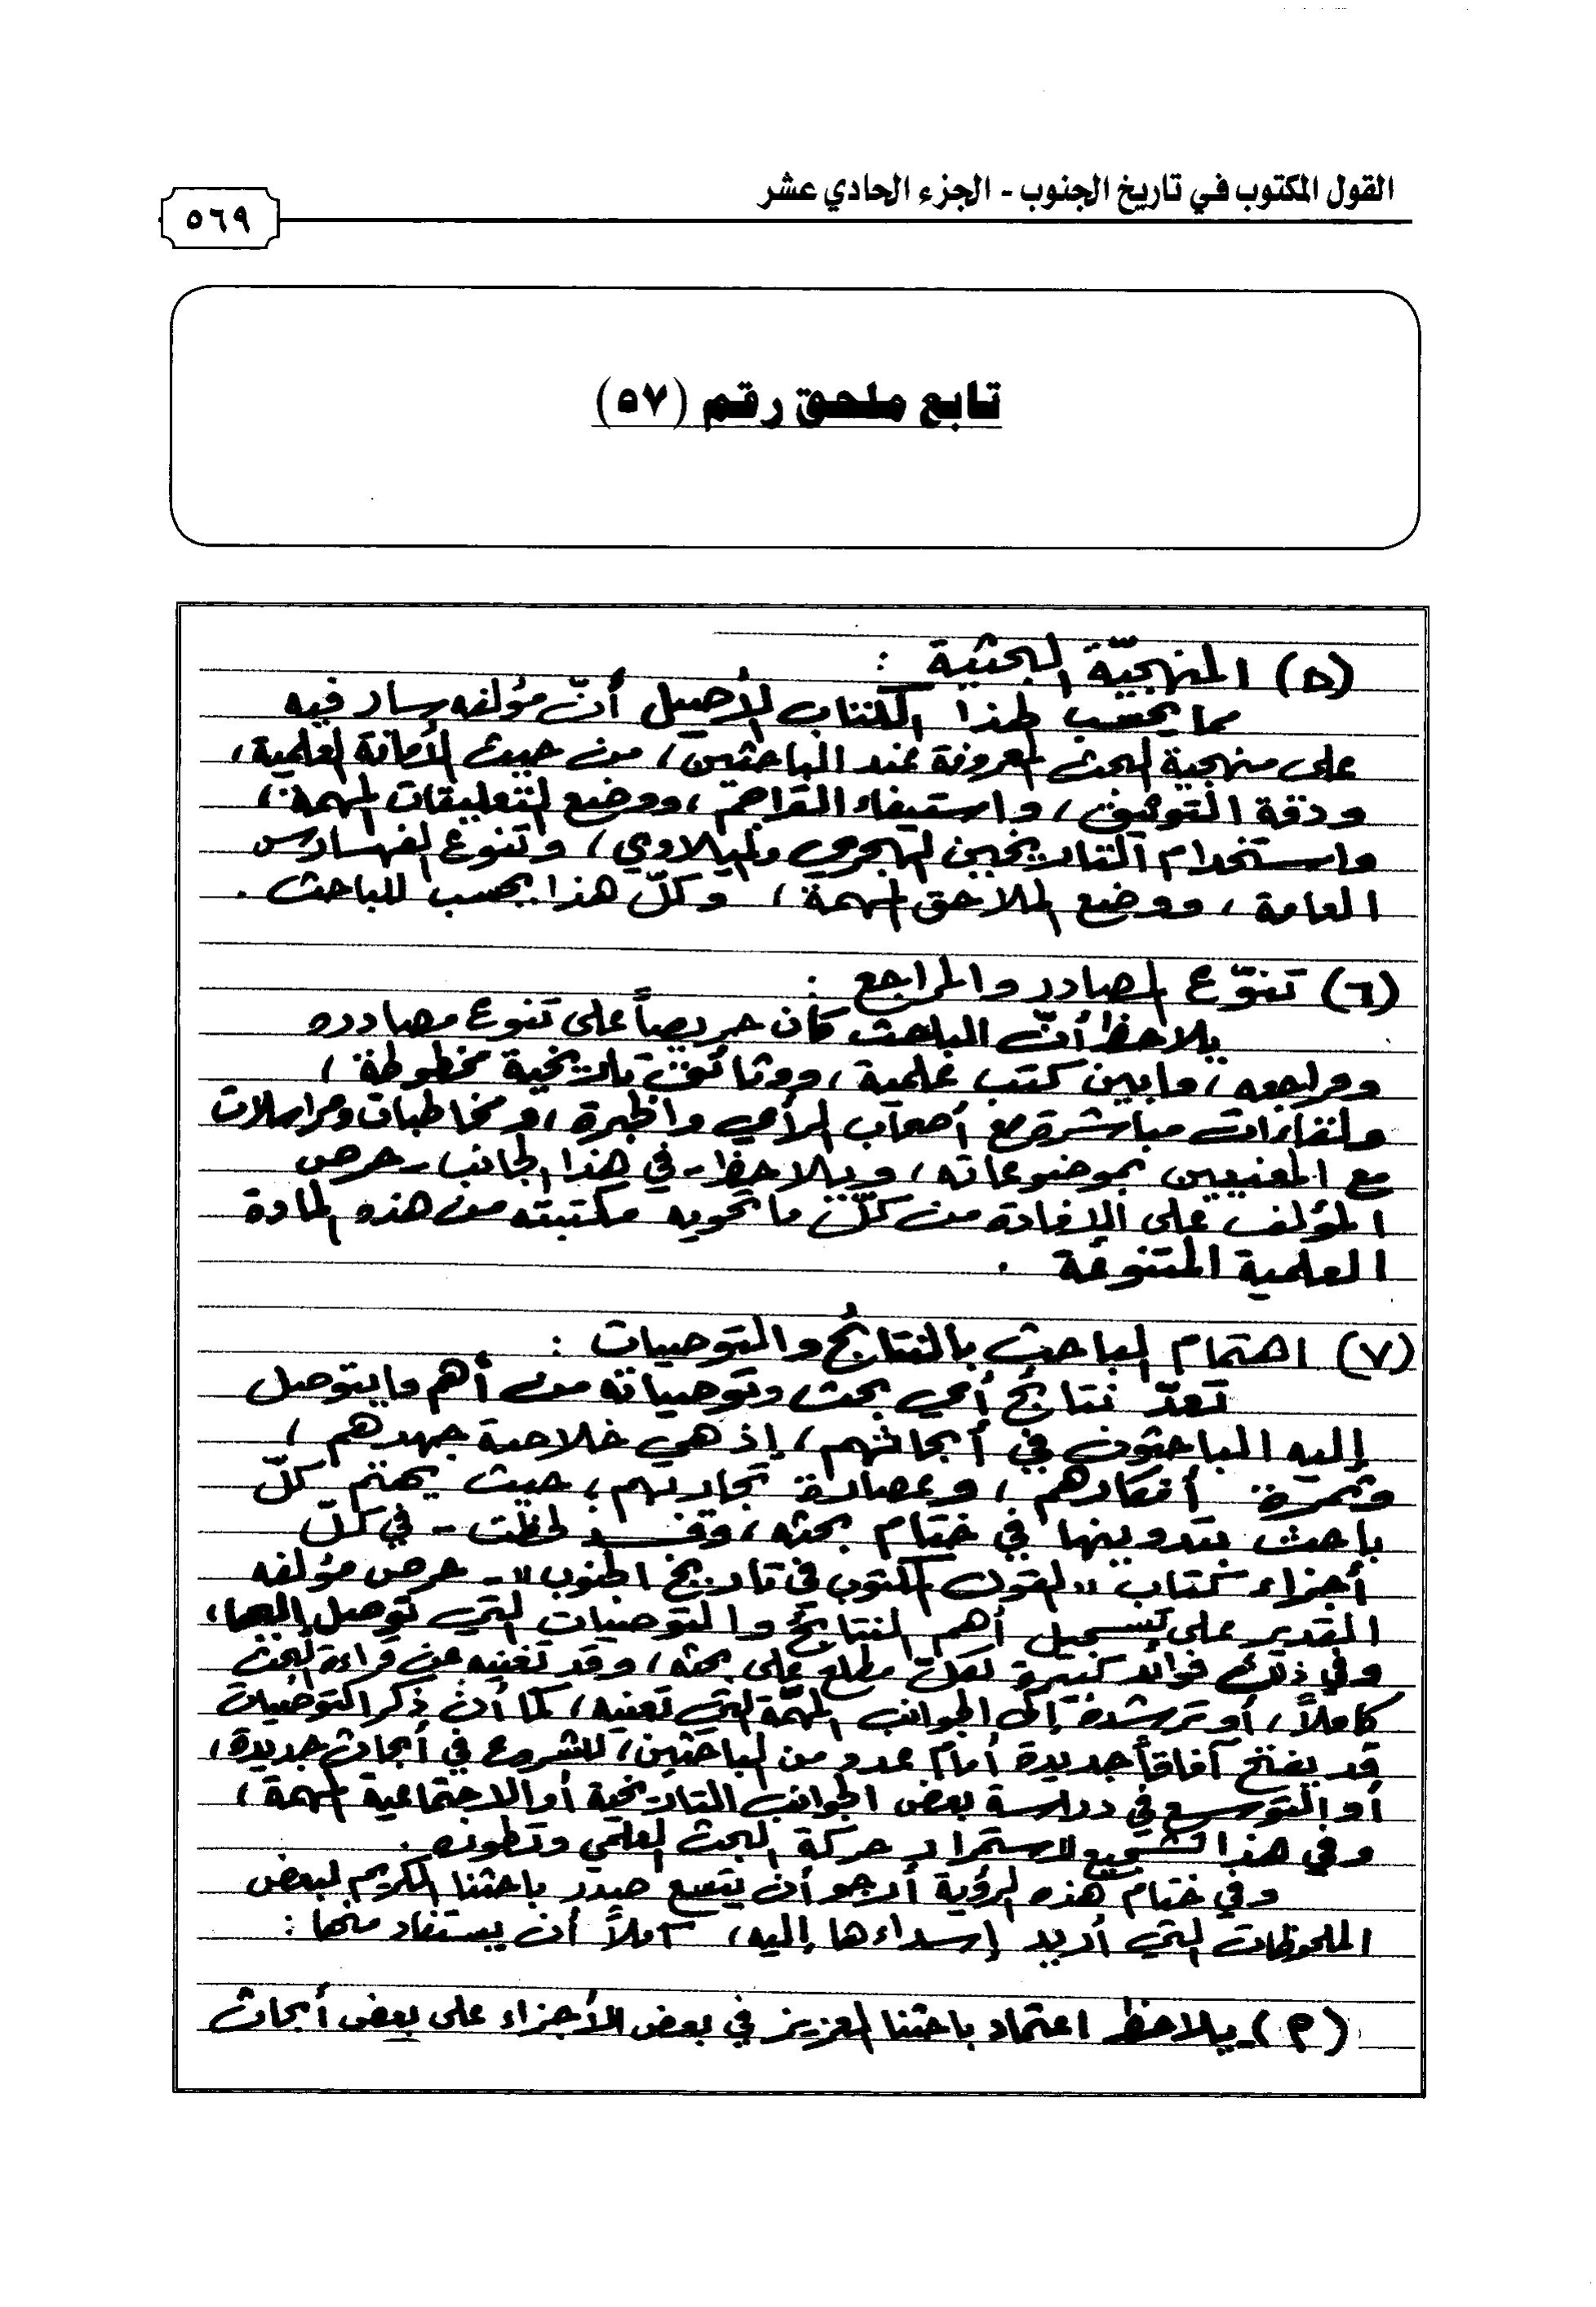 القول المكتوب في تاريخ الجنوب - الجزء الحادي عشر
٥٦٩
تابع ملحق رقم (٥٧)
(٥) المنهجيّة البحثية :
مما يحسب لهذا الكتاب الأصيل أنّ مؤلفه سار فيه
على منهجية البحث المعروفة عند الباحثين، من حيث الأمانة العلمية،
ودقة التوثيق، واستيفاء التراجم، ووضع التعليقات المهمة،
واستخدام التاريخين الهجري والميلادي، وتنوع الفهارس
العامة، ووضع الملاحق المهمة، وكلّ هذا يحسب للباحث.
(٦) تنوّع المصادر والمراجع :
يلاحظ أنّ الباحث كان حريصاً على تنوع مصادره
ومراجعه، مابين كتب علمية، ووثائق تاريخية مخطوطة،
ولقاءات مباشرة مع أصحاب الرأي والخبرة، ومخاطبات ومراسلات
مع المعنيين بموضوعاته، ويلاحظ - في هذا الجانب - حرص
المؤلف على الإفادة من كلّ ما تحويه مكتبته من هذه المادة
العلمية المتنوعة .
(٧) اهتمام الباحث بالنتائج والتوصيات :
تعدّ نتائج أي بحث وتوصياته من أهم ما يتوصل
إليه الباحثون في أبحاثهم، إذ هي خلاصة جهدهم،
وثمرة أفكارهم، وعصارة تجاربهم، حيث يهتم كلّ
باحث بتدوينها في ختام بحثه، وقد لحظت - في كلّ
أجزاء كتاب "القول المكتوب في تاريخ الجنوب" - حرص مؤلفه
القدير على تسجيل أهم النتائج والتوصيات التي توصل إليها،
وفي ذلك فوائد كثيرة لكلّ مطلع على بحثه، وقد تغنيه عن قراءة البحث
كاملاً، أو ترشده إلى الجوانب المهمّة التي تعنيه، كما أنّ ذكر التوصيات
قد يفتح آفاقاً جديدة أمام عدد من الباحثين، للشروع في أبحاث جديدة،
أو التوسع في دراسة بعض الجوانب التاريخية أو الاجتماعية المهمة،
وفي هذا تشجيع لاستمرار حركة البحث العلمي وتطوره .
وفي ختام هذه الرؤية أرجو أن يتسع صدر باحثنا الكريم لبعض
الملحوظات التي أريد إسداءها إليه، آملاً أن يستفاد منها :
(٢) - يلاحظ اعتماد باحثنا العزيز في بعض الأجزاء على بعض أبحاث